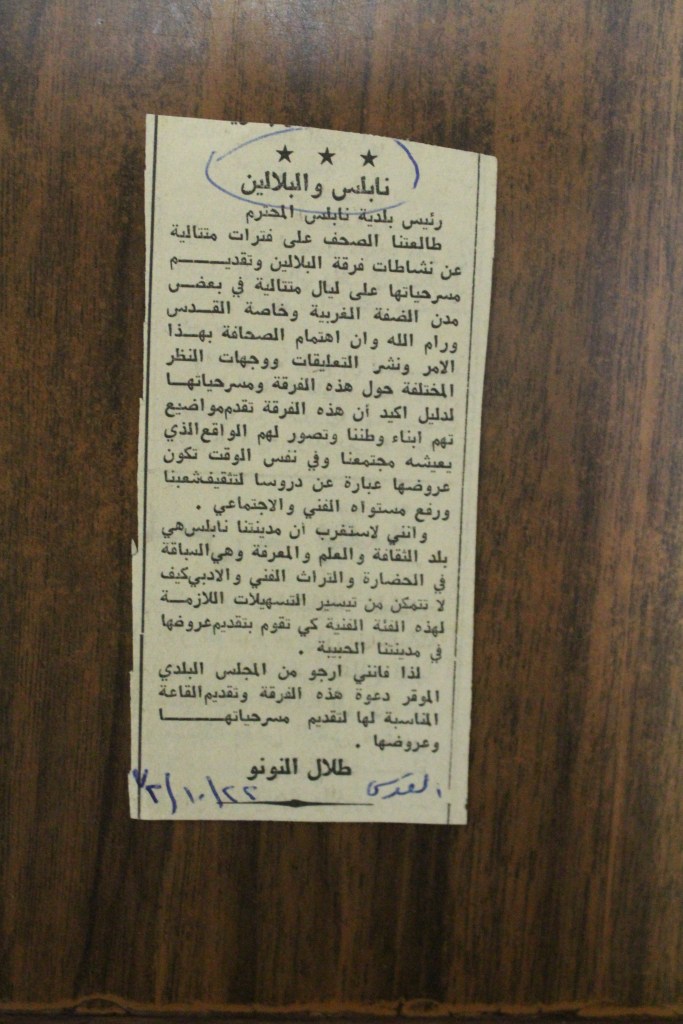 ★ ★ ★
نابلس والبلالين
رئيس بلدية نابلس المحترم
طالعتنا الصحف على فترات متتالية
عن نشاطات فرقة البلالين وتقديـــــم
مسرحياتها على ليال متتالية في بعض
مدن الضفة الغربية وخاصة القــدس
ورام الله وان اهتمام الصحافة بهــذا
الامر ونشر التعليقات ووجهات النظر
المختلفة حول هذه الفرقة ومسرحياتهــا
لدليل اكيد أن هذه الفرقة تقدم مواضيع
تهم ابناء وطننا وتصور لهم الواقع الذي
يعيشه مجتمعنا وفي نفس الوقت تكون
عروضها عبارة عن دروسا لتثقيف شعبنا
ورفع مستواه الفني والاجتماعي .
وانني لاستغرب أن مدينتنا نابلس هي
بلد الثقافة والعلم والمعرفة وهي السباقة
في الحضارة والتراث الفني والادبي كيف
لا تتمكن من تيسير التسهيلات اللازمــة
لهذه الفئة الفنية كي تقوم بتقديم عروضها
في مدينتنا الحبيبة .
لذا فانني ارجو من المجلس البلدي
الموقر دعوة هذه الفرقة وتقديم القاعة
المناسبة لها لتقديم مسرحياتهـــــــا
وعروضها .
طلال النونو
القدس ٢٢/١٠/